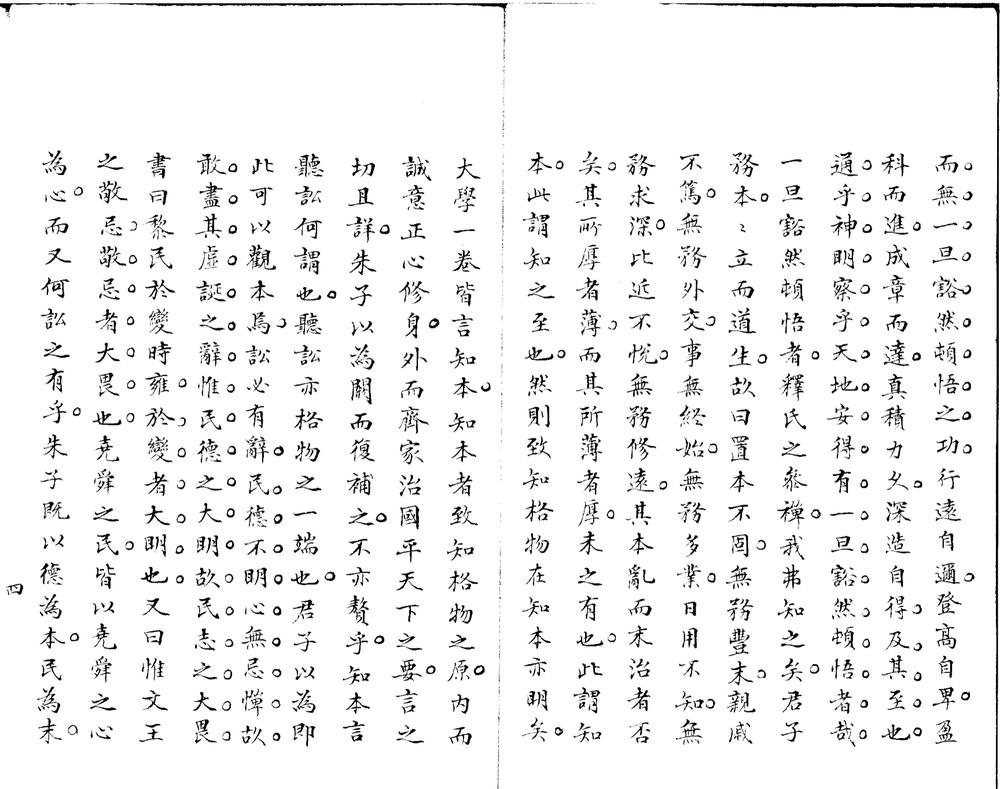 而無一旦豁然頓悟之功行遠自邇登高自卑盈
科而進成章而達真積力久深造自得及其至也
通乎神明察乎天地安得有一旦豁然頓悟者哉
一旦豁然頓悟者釋氏之叅禪我弗知之矣君子
務本〻立而道生故曰置本不固無務豐末親戚
不篤無務外交事無終始無務多業日用不知無
務求深比近不悅無務修遠其本亂而末治者否
矣其所厚者薄而其所薄者厚未之有也此謂知
本此謂知之至也然則致知格物在知本亦明矣
大學一卷皆言知本知本者致知格物之原內而
誠意正心修身外而齊家治國平天下之要言之
切且詳朱子以為闕而復補之不亦贅乎知本言
聽訟何謂也聽訟亦格物之一端也君子以為即
此可以觀本焉訟必有辭民德不明心無忌憚故
敢盡其虛誕之辭惟民德之大明故民志之大畏
書曰黎民於變時雍於變者大明也又曰惟文王
之敬忌敬忌者大畏也堯舜之民皆以堯舜之心
為心而又何訟之有乎朱子既以德為本民為末
四